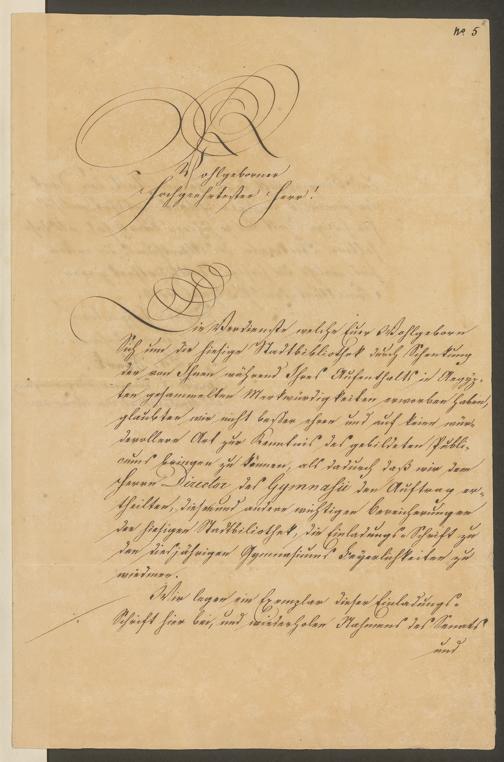 No 5
Wohlgeborner
Hochgeehrtester Herr!
Die Verdienste welche Euer Wohlgeborn
Sich um die hiesige Stadtbibliothek durch Schenkung
der von Ihnen während Ihres Aufenthalts in Aegyp-
ten gesammelten Merkwürdigkeiten erworben haben,
glaubten wir nicht besser ehren und auf keine wür-
devollere Art zur Kenntnis des gebildeten Publi-
cums bringen zu können, als dadurch daß wir dem
Herrn Director des Gymnasii den Auftrag er-
theilten, diese und andere wichtigen Bereicherungen
der hiesigen Stadtbibliothek, die Einladungs-Schrift zu
den diesjährigen Gymnasiums Feyerlichkeiten zu
widmen.
Wir legen ein Exemplar dieser Einladungs-
Schrift hier bei, und wiederholen Nahmens des Senats
und